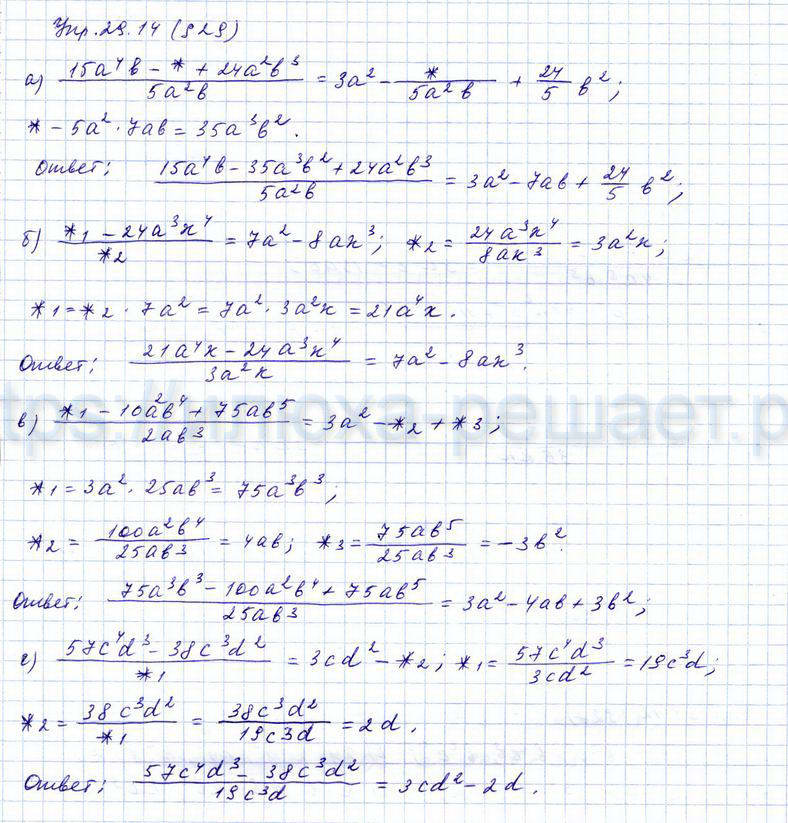 Упр. 29.14 (829)
а) (15a⁴b - * + 24a²b³)/(5a²b) = 3a² - */(5a²b) + 24/5 b²;
* - 5a² · 7ab = 35a³b².
Ответ: (15a⁴b - 35a³b² + 24a²b³)/(5a²b) = 3a² - 7ab + 24/5 b²;
б) (*1 - 24a³x⁴)/*2 = 7a² - 8ax³; *2 = 24a³x⁴/8ax³ = 3a²x;
*1 = *2 · 7a² = 7a² · 3a²x = 21a⁴x.
Ответ: (21a⁴x - 24a³x⁴)/(3a²x) = 7a² - 8ax³.
в) (*1 - 10a²b⁴ + 75ab⁵)/(2ab³) = 3a² - *2 + *3;
*1 = 3a² · 25ab³ = 75a³b³;
*2 = 100a²b⁴/25ab³ = 4ab; *3 = 75ab⁵/25ab³ = -3b².
Ответ: (75a³b³ - 100a²b⁴ + 75ab⁵)/(25ab³) = 3a² - 4ab + 3b²;
г) (57c⁴d³ - 38c³d²)/*1 = 3cd² - *2; *1 = 57c⁴d³/3cd² = 19c³d;
*2 = 38c³d²/*1 = 38c³d²/19c3d = 2d.
Ответ: (57c⁴d³ - 38c³d²)/(19c³d) = 3cd² - 2d.